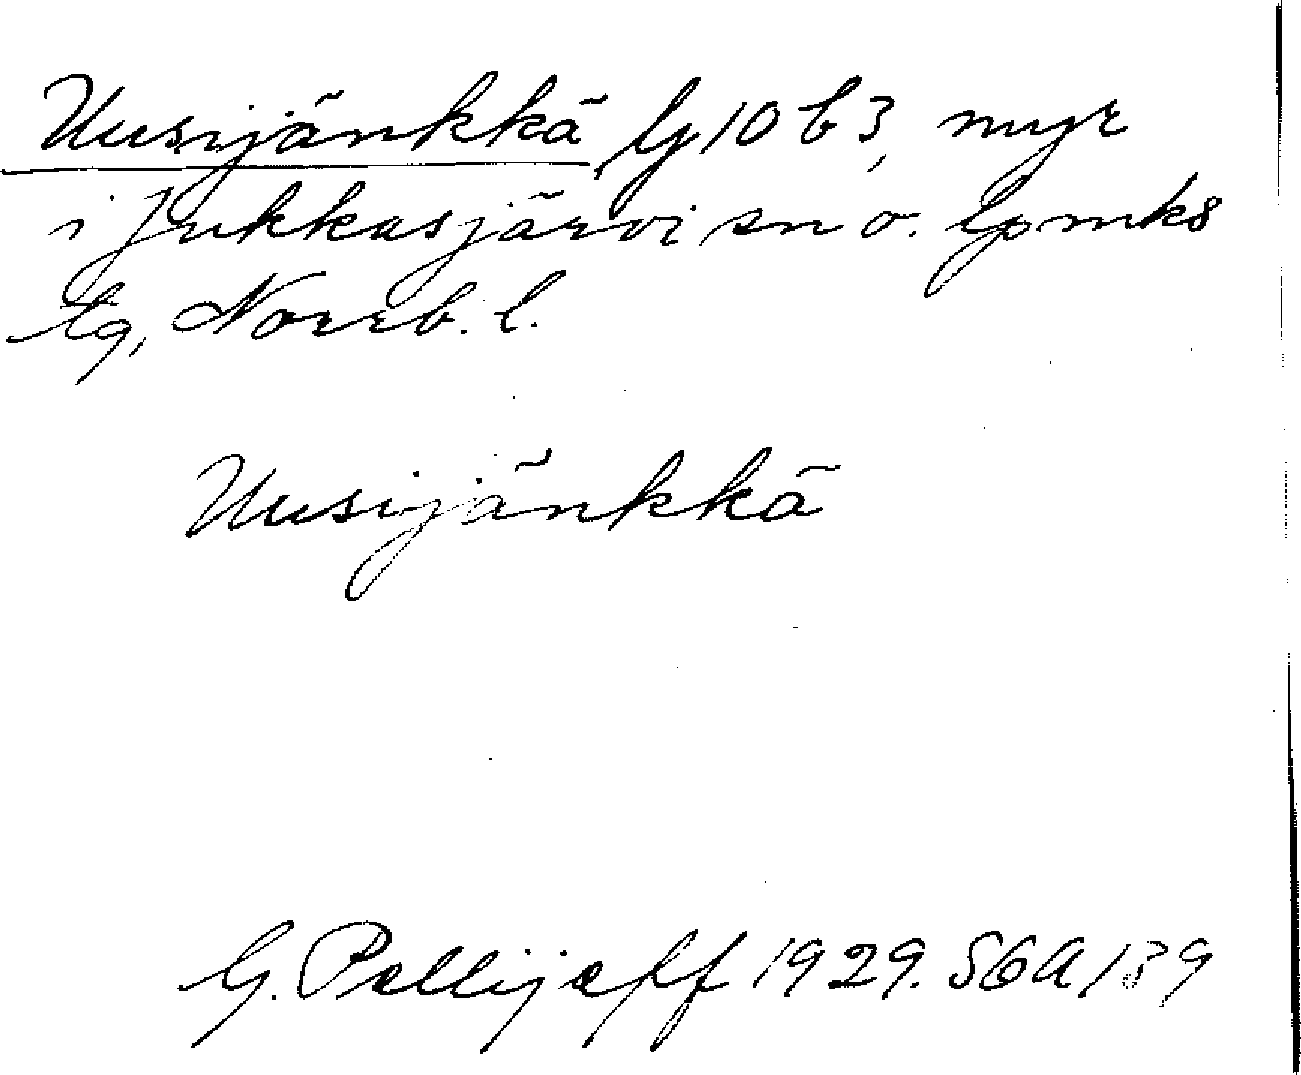 Uusijänkkä, G 10 b 3, myr
i Jukkasjärvi sn o. lpmks
tg, Norrb. l.
Uusijänkkä
G. Pellijeff 1929. SGA 139